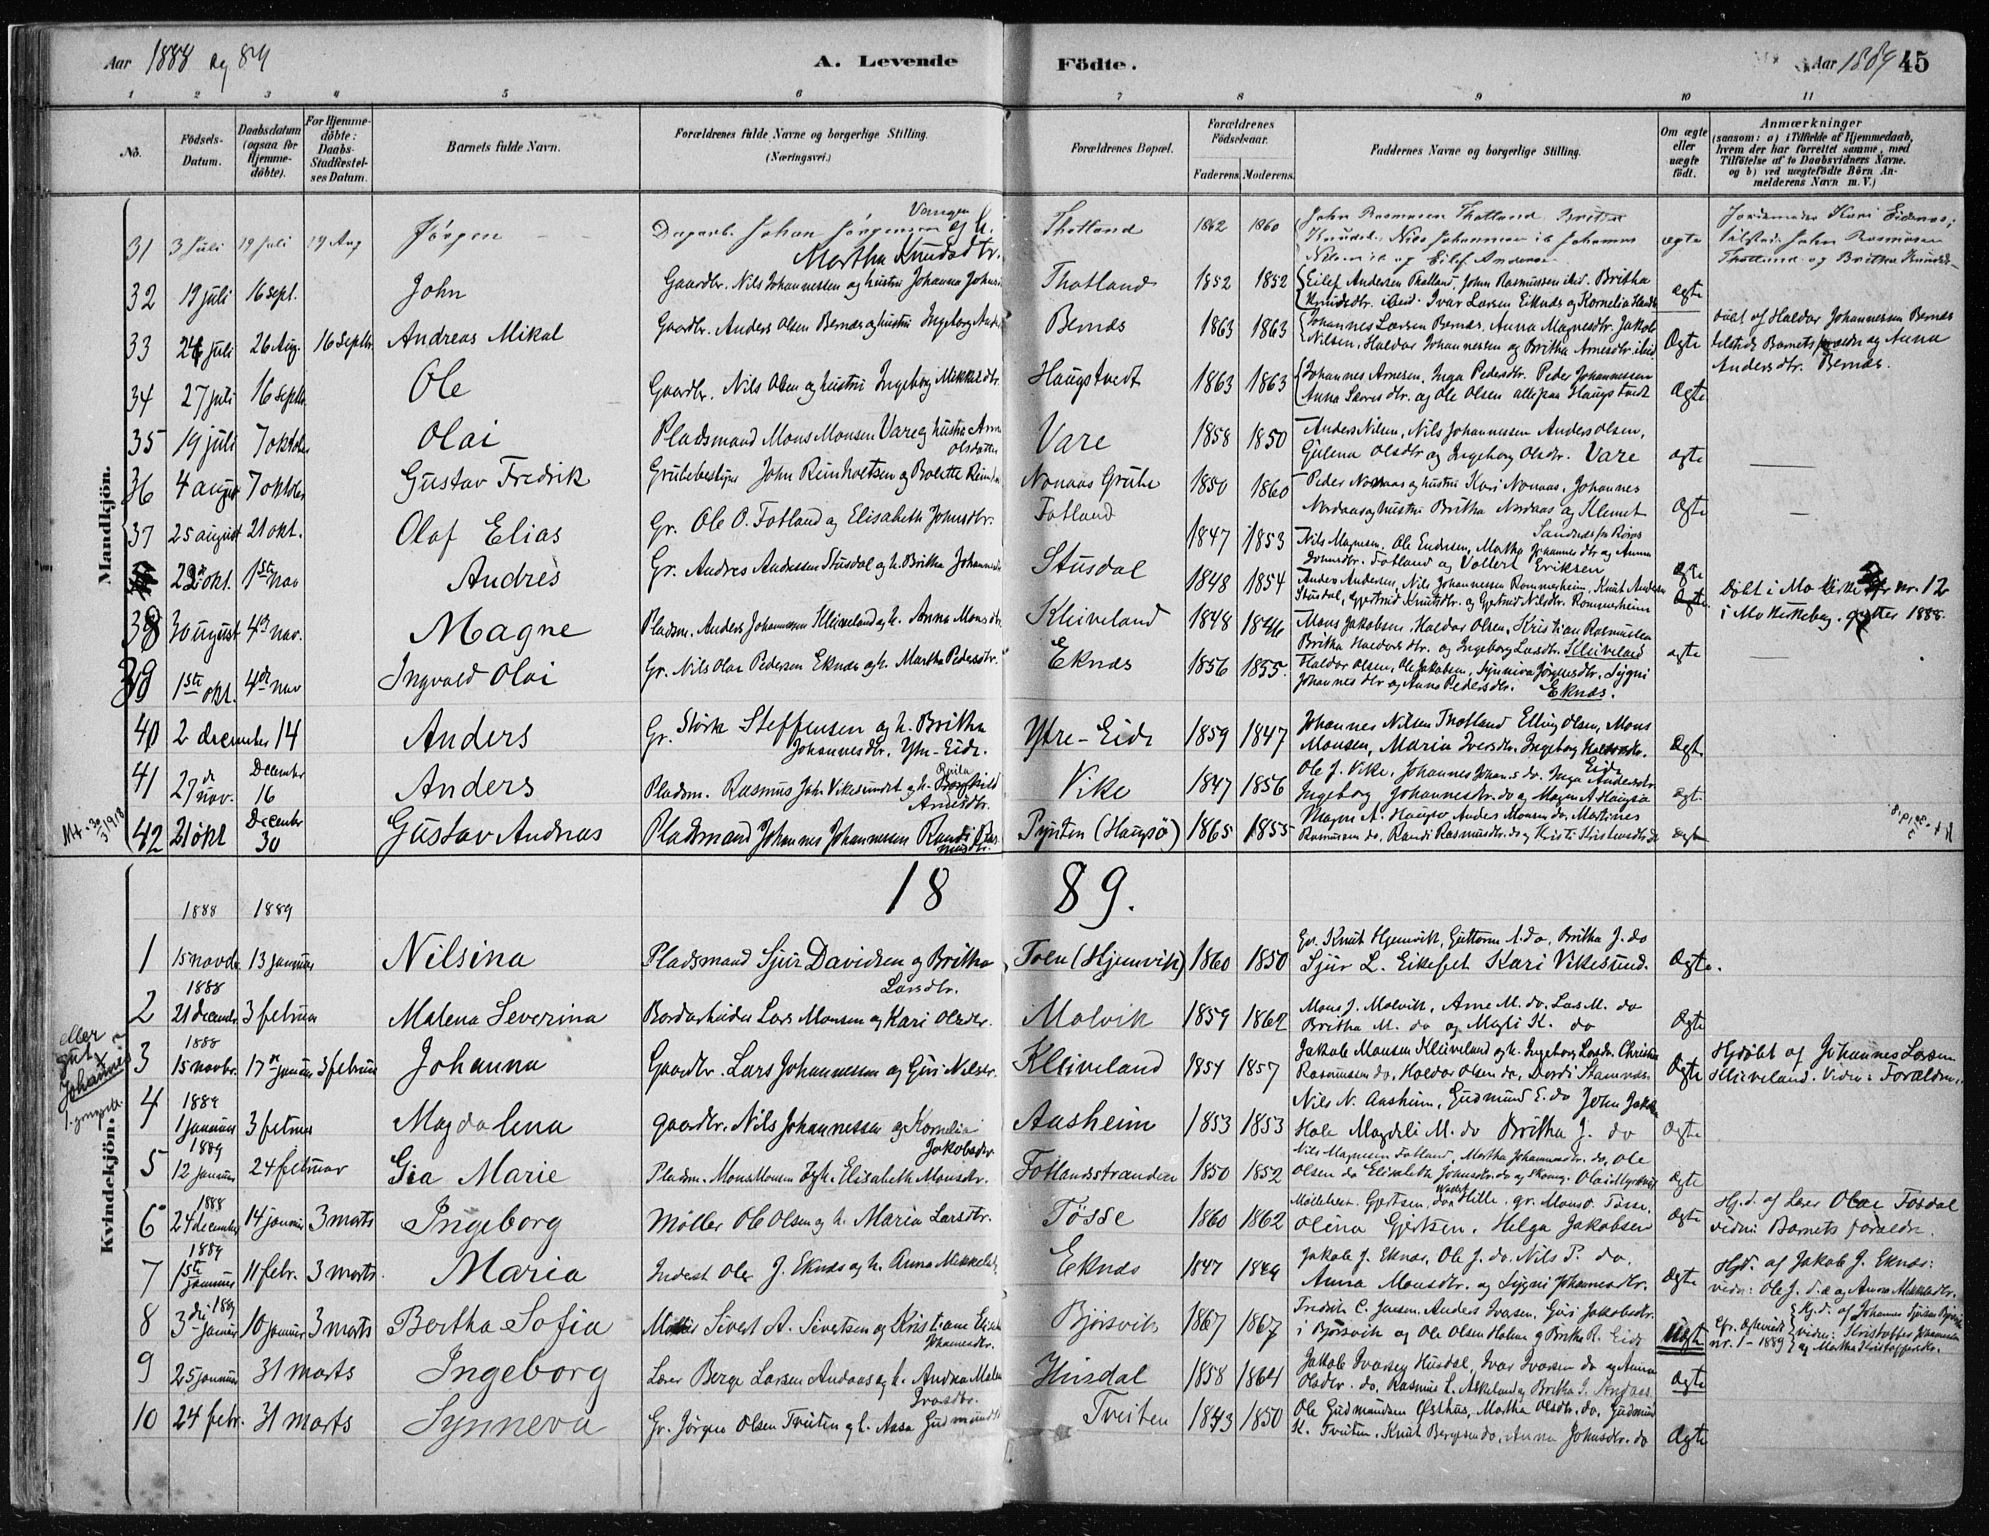 Aar 1888 og 89 A. Levende Födte. Aar 1889 45
1 2 3 4 5 6 7 8 9 10 11
No. Födsels-Datum. Daabsdatum (ogsaa for Hjemme-döbte). For Hjemme-döbte: Daabs-Stadfæstel-ses Datum. Barnets fulde Navn. Forældrenes fulde Navne og borgerlige Stilling. (Næringsvei.) Forældrenes Bopæl. Forældrenes Födselsaar. Faderens. Moderens. Faddernes Navne og borgerlige Stilling. Om ægte eller uægte födt. Anmærkninger (saasom: a) i Tilfælde af Hjemmedaab, hvem der har forrettet samme, med Tilföielse af to Daabsvidners Navne. og b) ved uægtefödte Börn An-melderens Navn m. V.)
Mandkjön.
31 3 Juli 19 Juli 19 Aug Jørgen Dagarb. Johan Jørgensen Vangen og h. Martha Knudsdtr. Thotland 1862 1860 John Rasmusen Thotland Britha Knudsd. Nils Johannesen ib Johannes Nilsen ib og Eilef Andersen ægte Jordemoder Kari Eidenes; tilsted: John Rasmusen Thotland og Britha Knudsd-
32 19 juli 16 sept. John Gaardbr. Nils Johannessen og hustru Johanna Johns Thotland 1852 1852 Eilef Andersen Thotland, John Rasmussen ibid. Britha Knudsdtr. ibid. Ivar Larsen Eiknes og Kornelia ægte
33 26 juli 26 Aug. 16 septbr. Andreas Mikal Gaardbr. Anders Olsen Bernæs og hustru Ingeborg Bernæs 1863 1863 Johannes Larsen Bernæs, Anna Magnesdtr. Jakob Nilsen, Haldor Johannessen og Britha Arnesdtr. ibid Ægte Døbt af Haldor Johannessen Bernæs tilstede Barnets forældre og Anna Andersdtr. Bernæs.
34 27 juli 16 septbr. Ole Gaardbr. Nils Olsen og hustru Ingeborg Mikkelsdtr. Haugstvedt 1863 1863 Johannes Arnesen, Inga Pedersdtr. Peder Johannessen Anna Larsdtr. og Ole Olsen alle paa Haugstvedt Ægte
35 19 juli 7 oktober Olai Pladsmand Mons Monsen Vare og hustru Anna Olsdatter Vare 1858 1850 Anders Nilsen, Nils Johannessen Anders Olsen, Gulena Olsdtr og Ingeborg Olsdtr. Vare ægte
36 4 august 7 oktober Gustav Fredrik Grubebestyrer John Reinholtsen og Bolette Nonaas Grube 1850 1860 Peder Nonaas og hustru Kari Nonaas, Johannes Nordaas og hustru Britha Nordaas og Klemet Sandnes fra Røros Ægte
37 25 august 21 okt. Olaf Elias Gr. Ole O. Fotland og Elisabeth Johnsdtr. Fotland 1847 1853 Nils Magnesen, Ole Endresen, Martha Johannesdtr og Anna Fotland og Vollert Eriksen Ægte
22 okt. 1ste nov Andrès Gr. Andres Andersen Stusdal og h. Britha Johannesdtr Stusdal 1848 1854 Anders Andersen, Nils Johannessen Rommerheim, Knut Andersen Stusdal, Gjertrud Knutsdtr. og Gjertrud Nilsdtr. Rommerheim Ægte Døbt i Mo Kirke nr. 12 i Mo Kirkebog 1888.
38 30 august 4de nov. Magne Pladsm. Anders Johannessen Kleiveland og h. Anna Monsdtr. Kleiveland 1848 1846 Mons Jakobsen, Haldor Olsen, Kristian Rasmussen Britha Haldorsdtr og Ingeborg Larsdtr. Kleiveland ægte
39 1ste okt. 4de nov Ingvald Olai Gr. Nils Olai Pedersen Eknæs og h. Martha Pedersdtr. Eknæs 1856 1855. Haldor Olsen, Ole Jakobsen, Synniva Jørgensdtr. Sygni Johannesdtr og Anna Pedersdtr. Eknæs.
40 2 december 14 Anders Gr. Størk Steffensen og h. Britha Johannesdtr. Ytr-Eide. Ytre-Eide 1859 1847 Johannes Nilsen Thotland Elling Olsen, Mons Monsen, Maria Iversdtr. Ingeborg Eide Ægte
41 27de nov. December 16 Anders Pladsm. Rasmus Joh. Vikesundet og h. Arnesdtr. Vike 1847 1856 Ole J. Vike, Johannes Johans do. Inga Andersdtr Ingeborg Johannesdtr. do og Magne A Haugsø ægte
42 21 okt December 30 Gustav Andreas Pladsmand Johannes Johannessen Randi Rasmusdtr. Pynten (Haugsø) 1865 1855 Magne A. Haugsø Anders Monsen do. Martines Rasmusen do. Randi Rasmusdtr. do og Kristi ægte
18 89.
Kvindekjön.
1888 1889
1 15 novbr 13 januar Nilsina Pladsmand Sjur Davidsen og Britha Larsdtr. Toen (Hjemvik) 1860 1850 Gr. Knut Hjemvik, Guttorm A. do, Britha J. do Sjur L. Eikefet Kari Vikesund. Ægte.
1888
2 21 decembr 3 februar Malena Severina Bordarbeider Lars Monsen og Kari Olsdtr. Molvik 1859 1862 Mons J. Molvik, Arne M. do. Lars M. do Britha M. do og Magli K. do Ægte
eller gut Johannes
1888
3 15 novbr. 17de januar 3 februar Johanna Gaardbr. Lars Johannessen og Guri Nilsdtr. Kleiveland 1854 1857 Jakob Monsen Kleiveland og h. Ingeborg Larsdtr. Christian Rasmussen do, Haldor Olsen do, Dordi Stamnæs. Ægte Hjdøbt af Johannes Larsen Kleiveland. Vidne: Forældrene.
1889
4 1 januar 3 februar Magdalena gaardbr. Nils Johannessen og Kornelia Jakobsdtr Aasheim 1853 1853 Nils N. Aasheim, Gudmund E. do John Jakobsen Hole Magdeli M. do Britha J. do Ægte
1889
5 12 januar 24 februar Gia Marie Pladsm. Mons Monsen og h. Elisabeth Monsdtr. Fotlandsstranden 1850 1852 Nils Magnesen Fotland, Martha Johannesdtr. do, Ole Olsen do Elisabeth Johnsdtr. do og Olai Myrdal ægte
1888
6 24 december 14 januar 3 marts Ingeborg Møller Ole Olsen og h. Maria Larsdtr. Tøsse 1860 1862 Gjertsen Hille. gr. Mons O. Tøsse, Olina Gjertsen, Helga Jakobsen Ægte Hjd. af Lærer Olai Fosdal vidne: Barnets forældr.
1889
7 1ste januar 11 febr. 3 marts. Maria Inderst Ole J. Eknæs og h. Anna Mikkelsd. Eknæs 1847 1849 Jakob J. Eknæs, Ole J. do. Nils P. do. Anna Monsdtr. og Sygni Johannesdtr. Ægte Hjd. af Jakob J. Eknæs: vidn: Ole J. do og Anna Mikkelsdtr.
8 3die 189 januar 10 januar 3 marts Bertha Sofia Sivert A. Sivertsen og Kristiane Johannesdtr. Bjørsvik 1867 1867 Fredrik C. Jansen, Anders Ivarsen. Guri Jakobsdtr. i Bjørsvik og Ole Olsen Holme og Britha R. Eide Uægte Hj.d. af Johannes Sjursen Bjørsvik vidn: Kristoffer Johannessen og Martha Kristoffersdtr. nr. 1 - 1889
9 25 januar 31 marts Ingeborg Lærer Berge Larsen Andaas og h. Andrea Malena Ivarsdtr. Husdal 1858 1864 Jakob Ivarsen Husdal, Ivar Ivarsen do og Anna Olsdtr. do, Rasmus L. Askeland og Britha J. Andaas. ægte
10 24 febr. 31 marts Synneva Gr. Jørgen Olsen Tveiten og h. Assa Gudmundsd Tveiten 1843 1850 Ole Gudmundsen Østhus, Martha Olsdtr. do, Gudmund K. Tveiten, Knut Bergesen do, Anna Johnsdtr. do Ægte